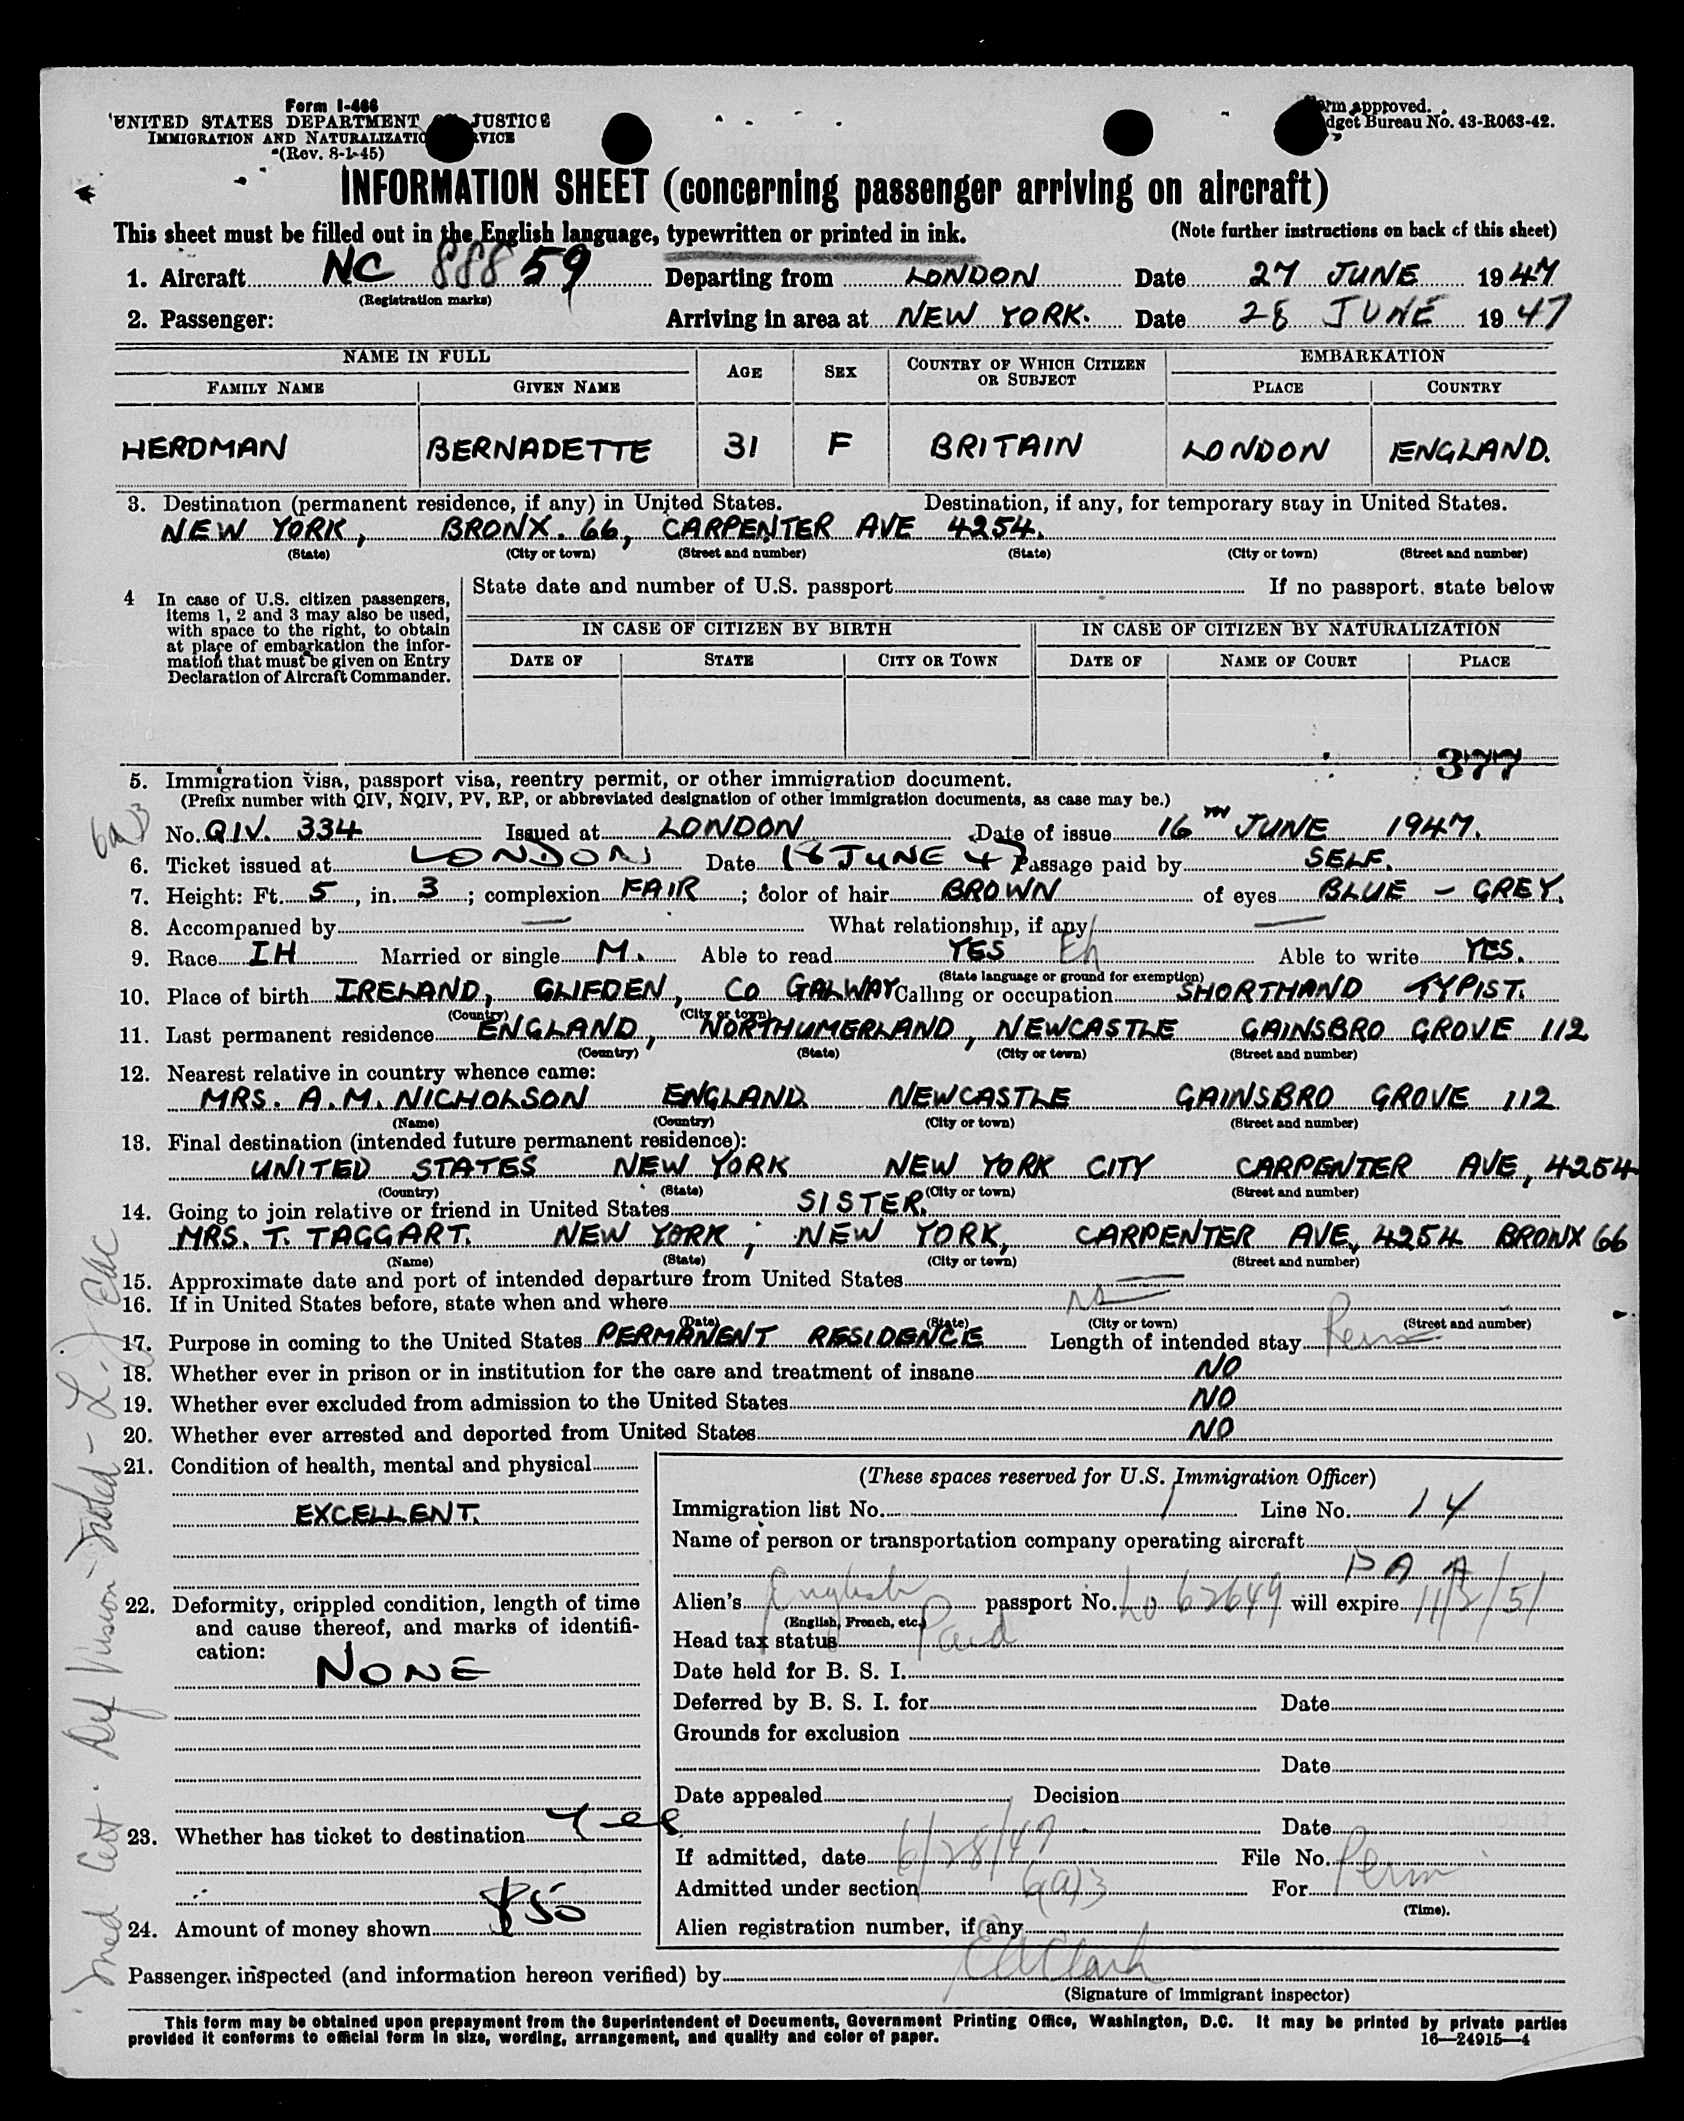 Form I-466
UNITED STATES DEPARTMENT JUSTICE
IMMIGRATION AND NATURALIZATIO RVICE
(Rev. 8-1-45)
Form approved.
dget Bureau No. 43-R063-42.
INFORMATION SHEET (concerning passenger arriving on aircraft)
This sheet must be filled out in the English language, typewritten or printed in ink.
(Note further instructions on back of this sheet)
1. Aircraft NC 88859 Departing from LONDON Date 27 JUNE 1947
(Registration marks)
2. Passenger: Arriving in area at NEW YORK. Date 28 JUNE 1947
NAME IN FULL AGE SEX COUNTRY OF WHICH CITIZEN OR SUBJECT EMBARKATION
FAMILY NAME GIVEN NAME PLACE COUNTRY
HERDMAN BERNADETTE 31 F BRITAIN LONDON ENGLAND.
3. Destination (permanent residence, if any) in United States. Destination, if any, for temporary stay in United States.
NEW YORK, BRONX. 66, CARPENTER AVE 4254.
(State) (City or town) (Street and number) (State) (City or town) (Street and number)
4 In case of U.S. citizen passengers,
items 1, 2 and 3 may also be used,
with space to the right, to obtain
at place of embarkation the infor-
mation that must be given on Entry
Declaration of Aircraft Commander.
State date and number of U.S. passport If no passport, state below
IN CASE OF CITIZEN BY BIRTH IN CASE OF CITIZEN BY NATURALIZATION
DATE OF STATE CITY OR TOWN DATE OF NAME OF COURT PLACE
377
5. Immigration visa, passport visa, reentry permit, or other immigration document.
(Prefix number with QIV, NQIV, PV, RP, or abbreviated designation of other immigration documents, as case may be.)
6a3
No. QIV. 334 Issued at LONDON Date of issue 16TH JUNE 1947.
6. Ticket issued at LONDON Date 18 JUNE 47 Passage paid by SELF.
7. Height: Ft. 5, in. 3; complexion FAIR; color of hair BROWN of eyes BLUE - GREY.
8. Accompanied by — What relationship, if any —
9. Race IH Married or single M. Able to read YES Eh Able to write YES.
(State language or ground for exemption)
10. Place of birth IRELAND, CLIFDEN, CO GALWAY Calling or occupation SHORTHAND TYPIST.
(Country) (City or town)
11. Last permanent residence ENGLAND, NORTHUMERLAND, NEWCASTLE GAINSBRO GROVE 112
(Country) (State) (City or town) (Street and number)
12. Nearest relative in country whence came:
MRS. A.M. NICHOLSON ENGLAND. NEWCASTLE GAINSBRO GROVE 112
(Name) (Country) (City or town) (Street and number)
13. Final destination (intended future permanent residence):
UNITED STATES NEW YORK NEW YORK CITY CARPENTER AVE, 4254
(Country) (State) (City or town) (Street and number)
14. Going to join relative or friend in United States SISTER.
MRS. T. TAGGART. NEW YORK, NEW YORK, CARPENTER AVE, 4254 BRONX 66
(Name) (State) (City or town) (Street and number)
15. Approximate date and port of intended departure from United States —
16. If in United States before, state when and where no
(Date) (State) (City or town) (Street and number)
17. Purpose in coming to the United States PERMANENT RESIDENCE Length of intended stay Perm
18. Whether ever in prison or in institution for the care and treatment of insane NO
19. Whether ever excluded from admission to the United States NO
20. Whether ever arrested and deported from United States NO
21. Condition of health, mental and physical
EXCELLENT.
22. Deformity, crippled condition, length of time
and cause thereof, and marks of identifi-
cation:
NONE
23. Whether has ticket to destination Yes
24. Amount of money shown $50
(These spaces reserved for U.S. Immigration Officer)
Immigration list No. 1 Line No. 14
Name of person or transportation company operating aircraft
PAA
Alien's English passport No. Lo 62649 will expire 11/2/51
(English, French, etc.)
Head tax status Paid
Date held for B. S. I.
Deferred by B. S. I. for Date
Grounds for exclusion
Date
Date appealed Decision
Date
If admitted, date 6/28/47 File No.
Admitted under section 6(a)3 For Perm
(Time).
Alien registration number, if any
Med Cert. Def Vision
Passenger inspected (and information hereon verified) by EAClark
(Signature of immigrant inspector)
This form may be obtained upon prepayment from the Superintendent of Documents, Government Printing Office, Washington, D.C. It may be printed by private parties
provided it conforms to official form in size, wording, arrangement, and quality and color of paper.
16—24915—4